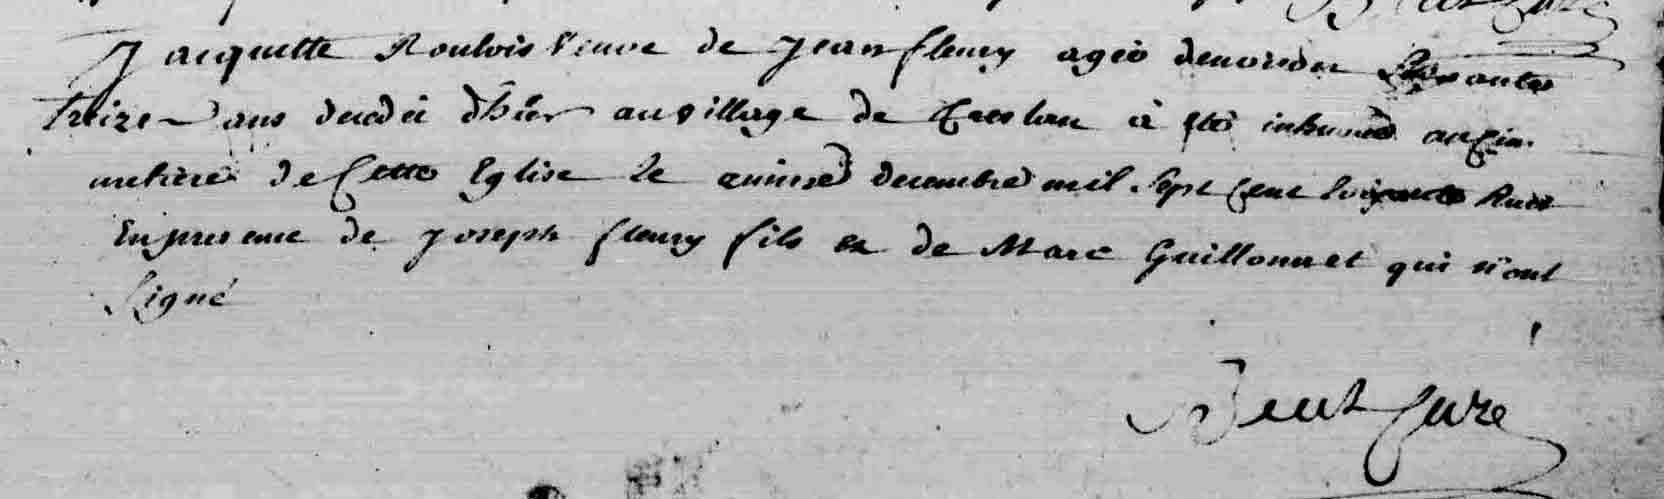 Jacquette Roulois Veuve de Jean fleury agéé denviron Soixante
treize ans decedéé d'hier au village de a été inhumée au Cim
metiere de Cette Eglise le quinze decembre mil Sept Cent Soixante huit
En presence de Joseph fleury fils et de Marc Guillonnet qui n'ont
Signé
Curé